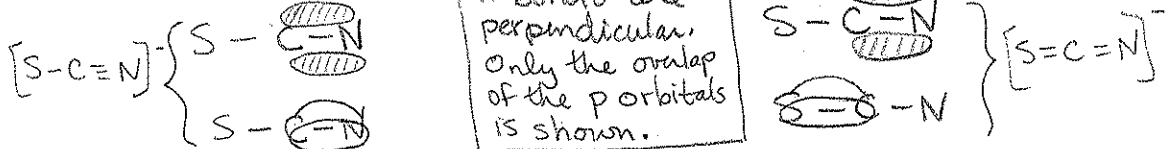 [S-C≡N]⁻
S - C - N
S - C - N
perpendicular.
Only the overlap
of the p orbitals
is shown.
S - C - N
S - C - N
[S=C=N]⁻